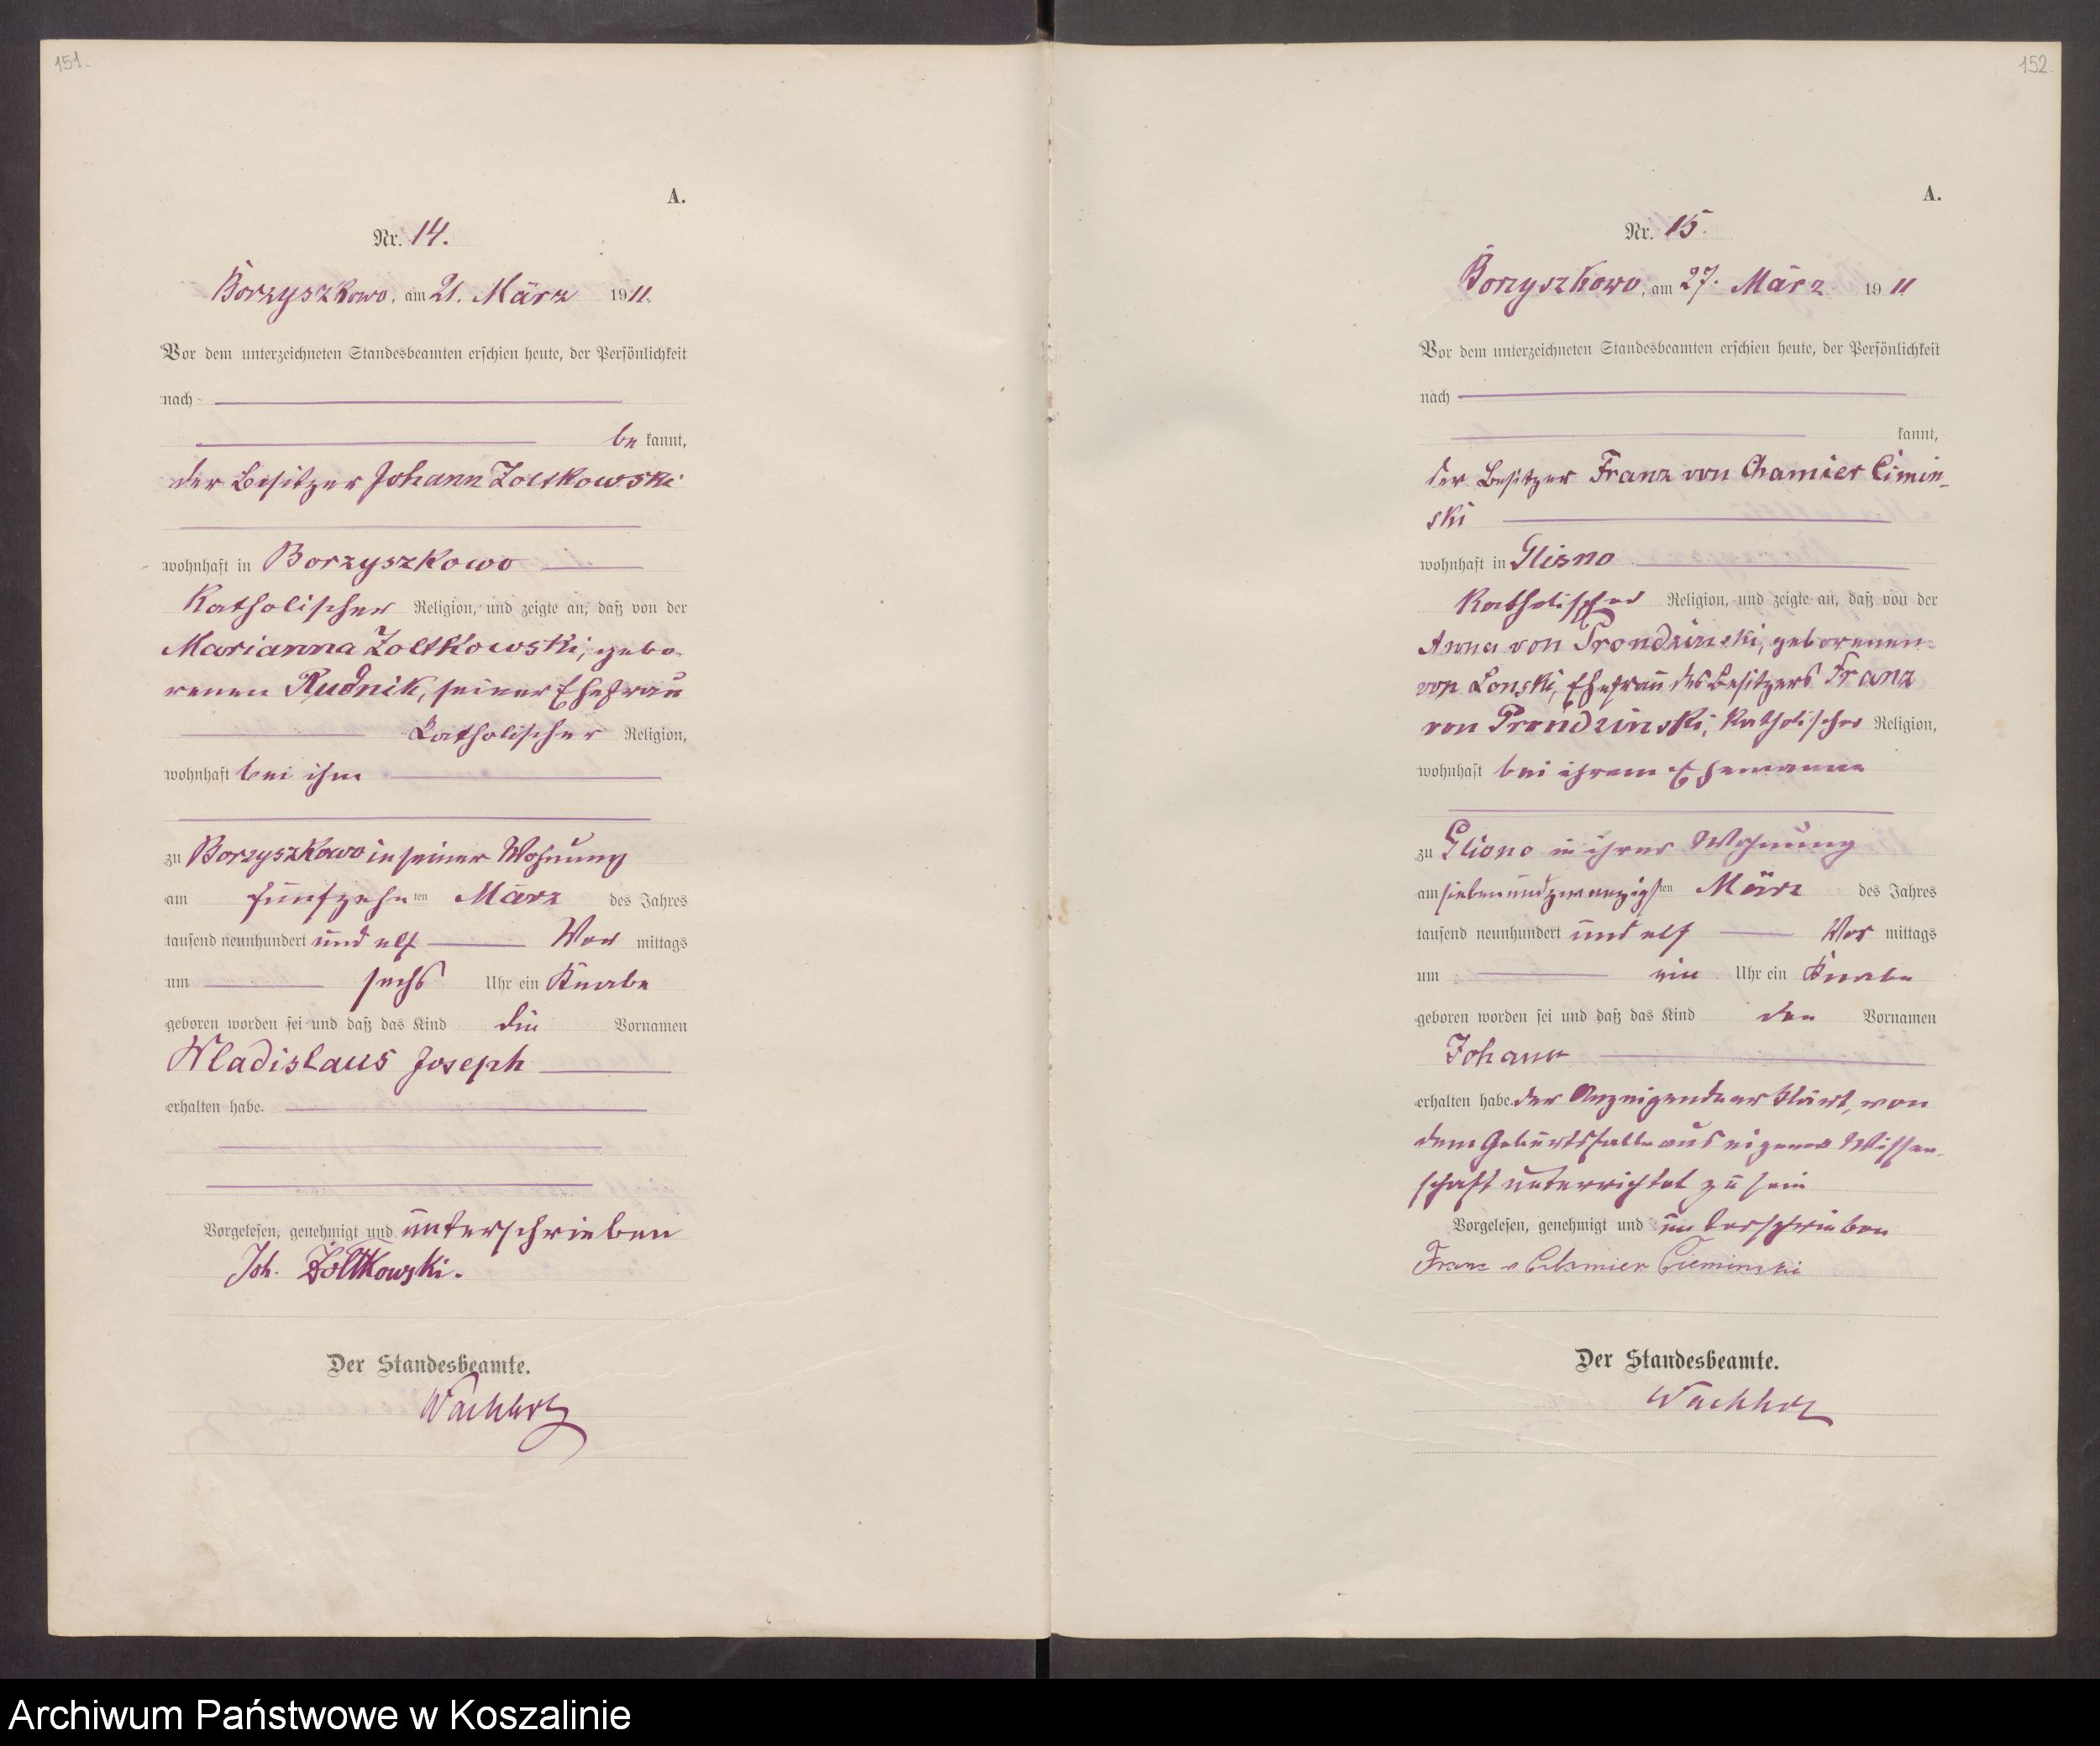 151.
A.
Nr. 14.
Borzyszkowo, am 21. März 1911.
Vor dem unterzeichneten Standesbeamten erschien heute, der Persönlichkeit
nach
be kannt,
der Besitzer Johann Zoltkowski
wohnhaft in Borzyszkowo
Katholischer Religion, und zeigte an, daß von der
Marianna Zoltkowski, gebo-
renen Rudnik, seiner Ehefrau
Katholischer Religion,
wohnhaft bei ihm
zu Borzyszkowo in seiner Wohnung
am fünfzehn ten März des Jahres
tausend neunhundert und elf Vor mittags
um sechs Uhr ein Knabe
geboren worden sei und daß das Kind die Vornamen
Wladislaus Joseph
erhalten habe.
Vorgelesen, genehmigt und unterschrieben
Joh. Zoltkowski.
Der Standesbeamte.
Wachholz
152.
A.
Nr. 15.
Borzyszkowo, am 27. März 1911
Vor dem unterzeichneten Standesbeamten erschien heute, der Persönlichkeit
nach
kannt,
der Besitzer Franz von Chamier Cimin-
ski
wohnhaft in Glisno
Katholischer Religion, und zeigte an, daß von der
Anna von Prondzinski, geborenen
von Lonski, Ehefrau des Besitzers Franz
von Prondzinski, Katholischer Religion,
wohnhaft bei ihrem Ehemanne
zu Glisno in ihrer Wohnung
am siebenundzwanzigsten März des Jahres
tausend neunhundert und elf Vor mittags
um ein Uhr ein Knabe
geboren worden sei und daß das Kind den Vornamen
Johann
erhalten habe. Der Anzeigende erklärt, von
dem Geburtsfalle aus eigener Wissen-
schaft unterrichtet zu sein
Vorgelesen, genehmigt und unterschrieben
Franz v Chamier Cieminski
Der Standesbeamte.
Wachholz
Archiwum Państwowe w Koszalinie